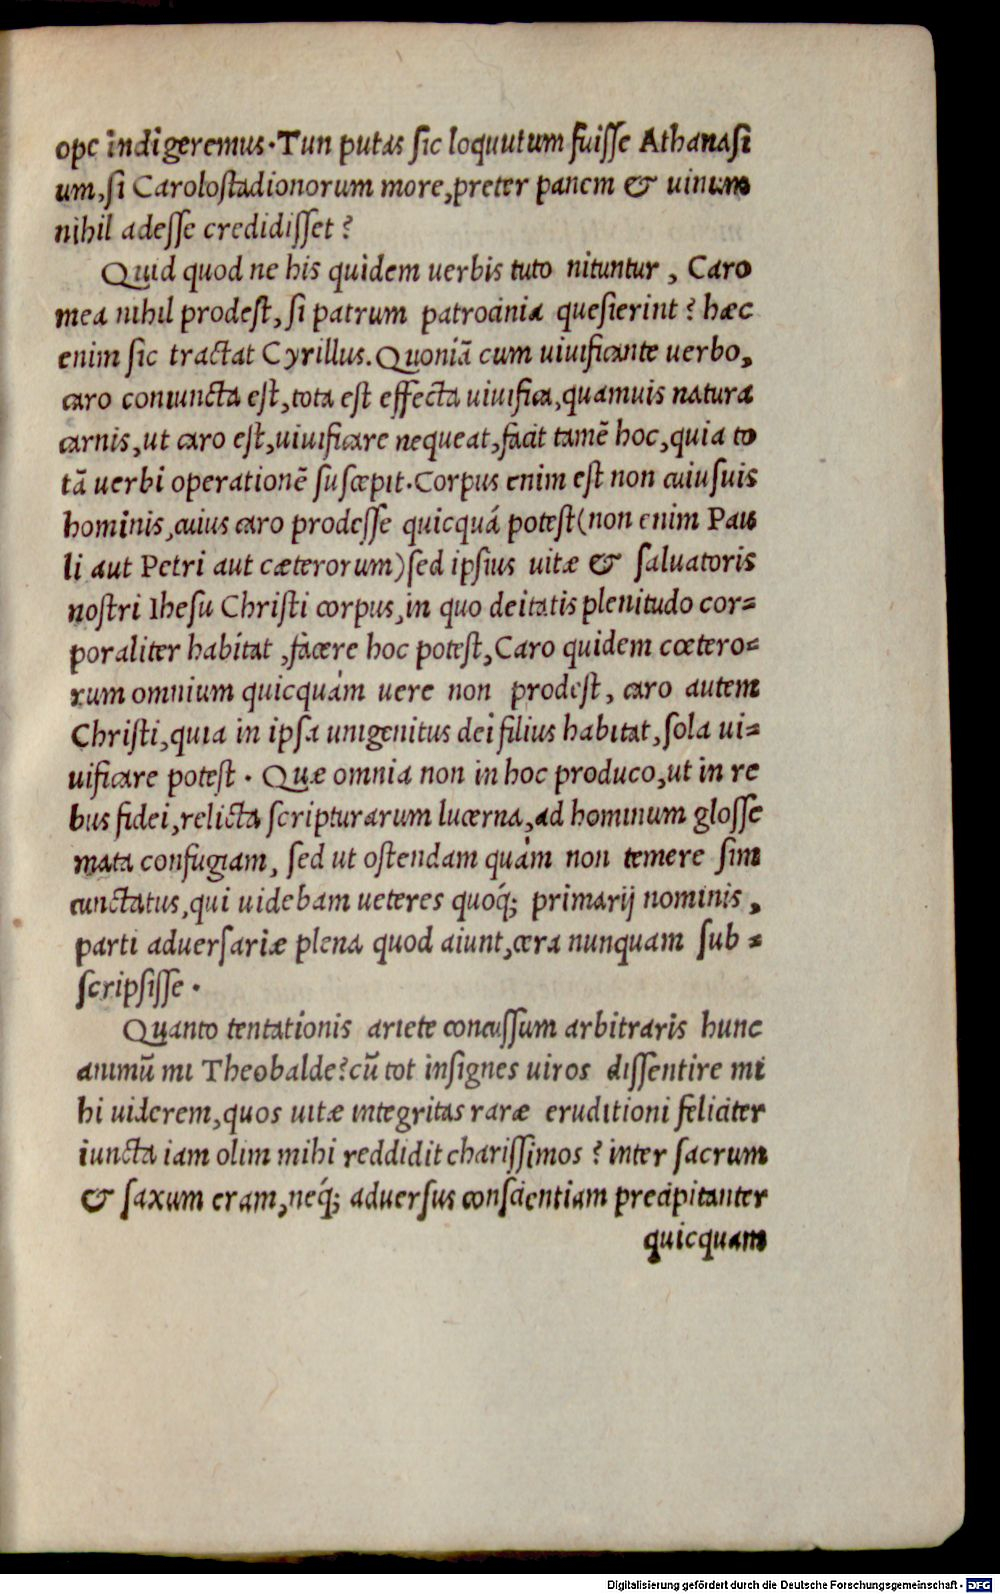 ope indigeremus. Tun putas sic loquutum fuisse Athanasi
um, si Carolostadionorum more, preter panem & uinum
nihil adesse credidisset?
Quid quod ne his quidem uerbis tuto nituntur, Caro
mea nihil prodest, si patrum patrocinia quesierint? hæc
enim sic tractat Cyrillus. Quoniã cum uiuificante uerbo,
caro coniuncta est, tota est effecta uiuifica, quamuis natura
carnis, ut caro est, uiuificare nequeat, facit tamẽ hoc, quia to
tã uerbi operationẽ suscepit. Corpus enim est non cuiusuis
hominis, cuius caro prodesse quicquá potest (non enim Pau
li aut Petri aut cæterorum) sed ipsius uitæ & saluatoris
nostri Ihesu Christi corpus, in quo deitatis plenitudo cor=
poraliter habitat, facere hoc potest, Caro quidem cœtero=
rum omnium quicquàm uere non prodest, caro autem
Christi, quia in ipsa unigenitus dei filius habitat, sola ui=
uificare potest. Quæ omnia non in hoc produco, ut in re
bus fidei, relicta scripturarum lucerna, ad hominum glosse
mata confugiam, sed ut ostendam quàm non temere sim
cunctatus, qui uidebam ueteres quoq́; primarij nominis,
parti aduersariæ plena quod aiunt, cera nunquam sub=
scripsisse.
Quanto tentationis ariete concussum arbitraris hunc
animũ mi Theobalde? cũ tot insignes uiros dissentire mi
hi uiderem, quos uitæ integritas raræ eruditioni feliciter
iuncta iam olim mihi reddidit charissimos? inter sacrum
& saxum eram, neq́; aduersus conscientiam precipitanter
quicquam
Digitalisierung gefördert durch die Deutsche Forschungsgemeinschaft - DFG